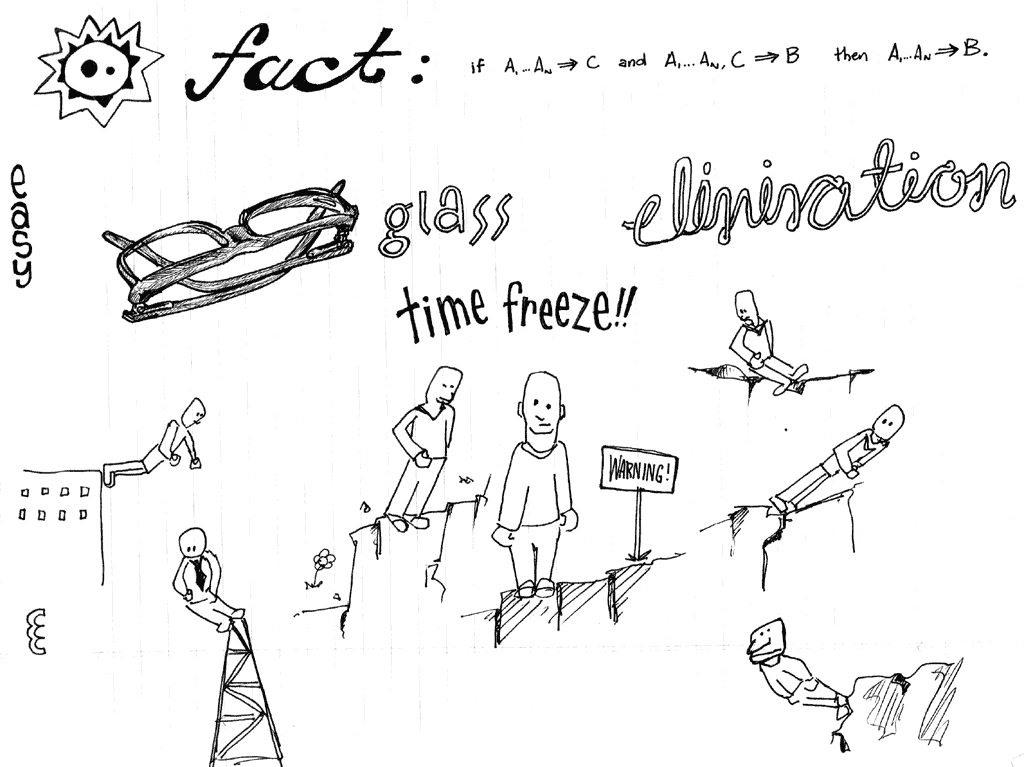 fact: if A,...Aₙ ⇒ C and A,...Aₙ, C ⇒ B then A,...Aₙ ⇒ B.
easy
glass
elimination
time freeze!!
WARNING!